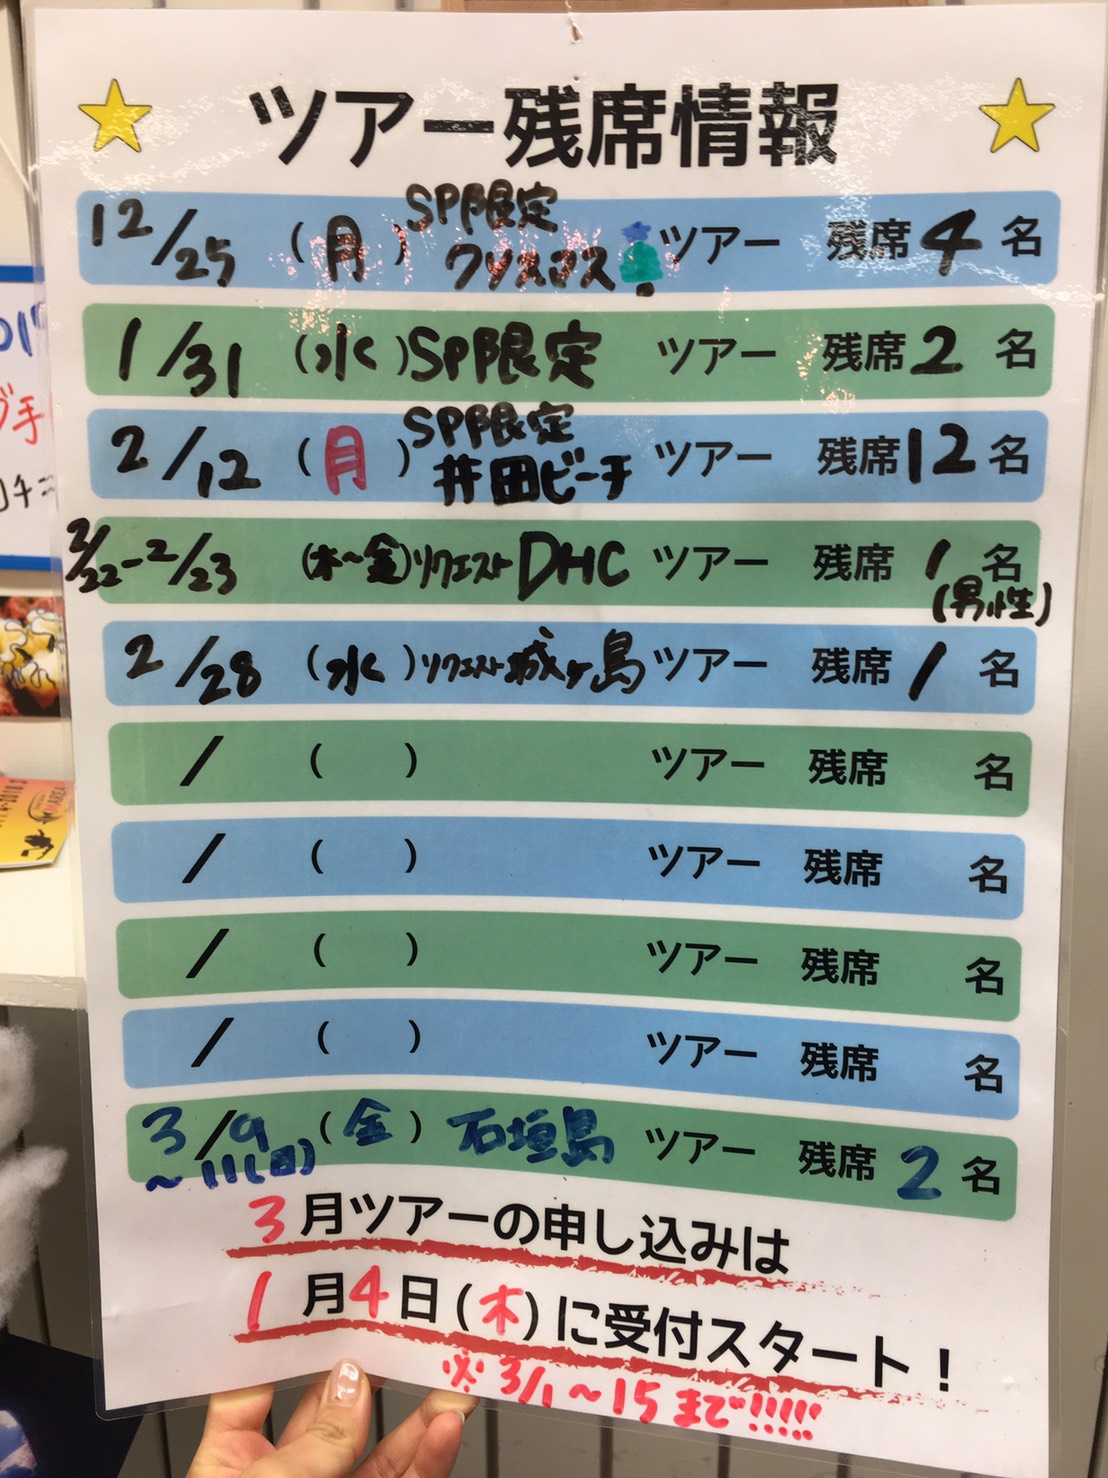 ツアー残席情報
12/25 (月) SP限定 クリスマス ツアー 残席 4 名
1/31 (水) SP限定 ツアー 残席 2 名
2/12 (月) SP限定 井田ビーチ ツアー 残席 12 名
2/22-2/23 (木~金) リクエスト DHC ツアー 残席 1 名
(男性)
2/28 (水) リクエスト 城ヶ島 ツアー 残席 1 名
/ ( ) ツアー 残席 名
/ ( ) ツアー 残席 名
/ ( ) ツアー 残席 名
/ ( ) ツアー 残席 名
3/9 (金) 石垣島 ツアー 残席 2 名
~11(日)
3月ツアーの申し込みは
1月4日(木)に受付スタート!
※3/1~15まで!!!!!